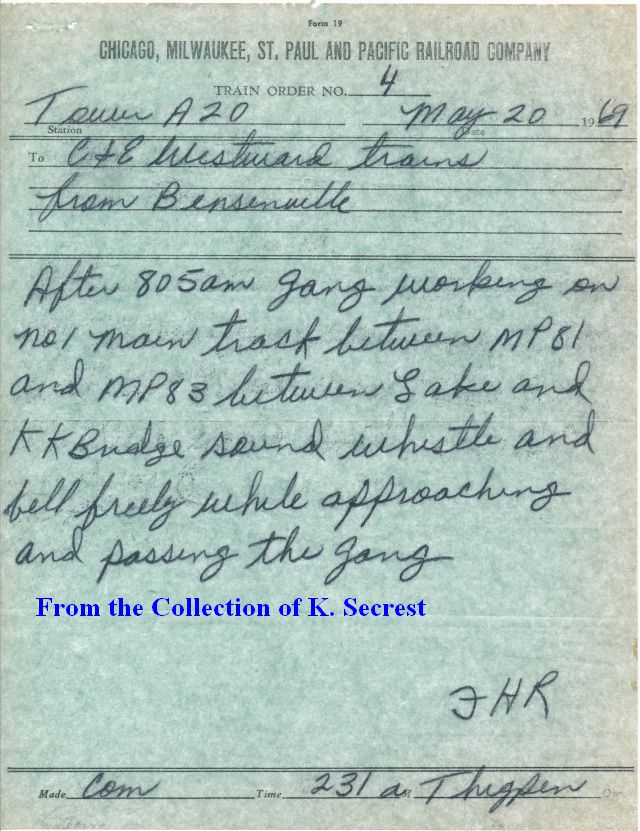 Form 19
CHICAGO, MILWAUKEE, ST. PAUL AND PACIFIC RAILROAD COMPANY
TRAIN ORDER NO. 4
Tower A20 May 20 1969
Station Date
To C&E Westward trains
from Bensenville
After 805am gang working on
no1 main track between MP81
and MP83 between Lake and
KK Bridge sound whistle and
bell freely while approaching
and passing the gang
From the Collection of K. Secrest
FHR
Made Com Time 231 a M Thigpen Opr